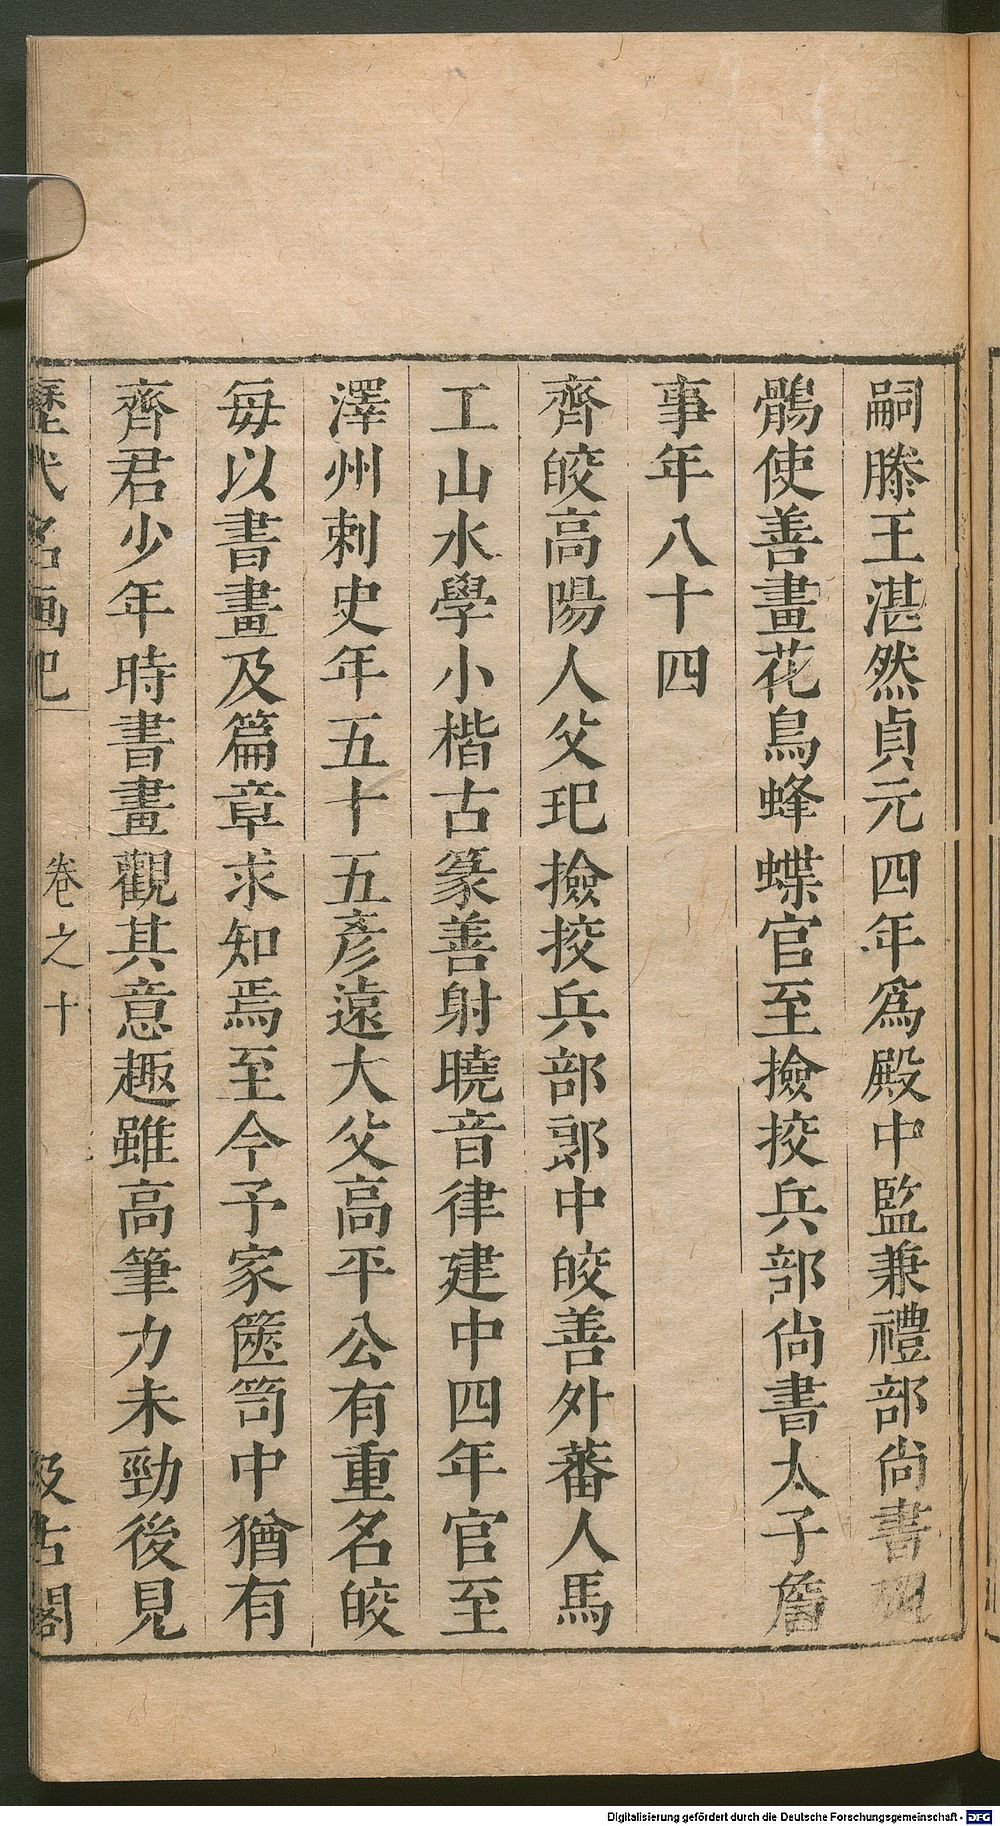 嗣滕王湛然貞元四年爲殿中監兼禮部尚書
鶻使善畫花鳥蜂蝶官至撿挍兵部尚書太子詹
事年八十四
齊皎高陽人父玘撿挍兵部郎中皎善外蕃人馬
工山水學小楷古篆善射曉音律建中四年官至
澤州刺史年五十五彥遠大父高平公有重名皎
每以書畫及篇章求知焉至今予家篋笥中猶有
齊君少年時書畫觀其意趣雖高筆力未勁後見
歷代名画記 卷之十 汲古閣
Digitalisierung gefördert durch die Deutsche Forschungsgemeinschaft - DFG